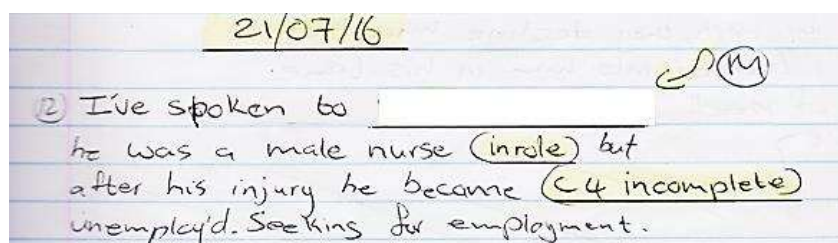 21/07/16
(M)
(12) I've spoken to
he was a male nurse (inrole) but
after his injury he became (C4 incomplete)
unemploy'd. Seeking for employment.